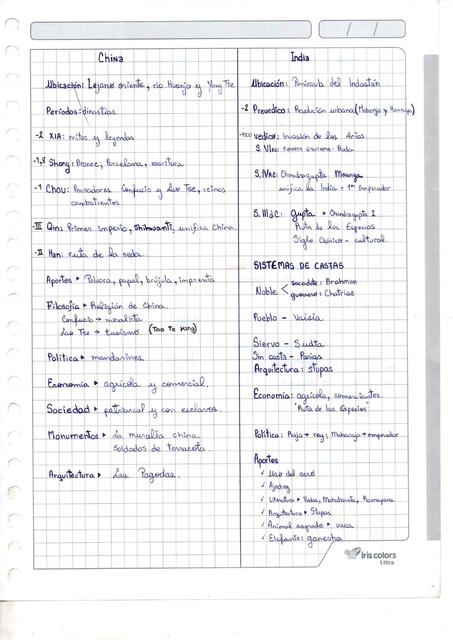 China
Ubicación: Lejano oriente, río Huanjo y Yang Tse
Períodos: dinastías
-2 XIA: mitos y leyendas
-1,8 Shang: Bronce, Porcelana, escritura
-1 Chou: Pensadores Confucio y Lao Tse, reinos
combatientes
-III Qin: Primer imperio, Shihuanti, unifica China.
-II Han: ruta de la seda.
Aportes ▸ Pólvora, papel, brújula, imprenta
Filosofía ▸ Religión de China.
Confucio → moralista
Lao Tse → taoísmo (Tao Te King)
Política ▸ mandarines.
Economía ▸ agrícola y comercial.
Sociedad ▸ patriarcal y con esclavos.
Monumentos ▸ La muralla china.
Soldados de terracota.
Arquitectura ▸ Las Pagodas.
India
Ubicación: Península del Indostán
-2 Prevedico: Revolución urbana (Mohenjo y Harappa)
-1500 Vedico: Invasión de los Arios
S. VIac: Buda
S. IVac: Chandragupta Maurya
unifica la India - 1er Emperador
S. IIIdC: Gupta ▸ Chandragupta I
Ruta de las Especies
Siglo Clásico - cultural.
SISTEMAS DE CASTAS
Noble < sacerdote: Brahman
guerrero: Chatrias
Pueblo - Vaisia
Siervo - Sudra
Sin casta - Parias
Arquitectura: stupas
Economía: agrícola, comerciantes.
"Ruta de las Especies"
Política: Raja → rey; Maharaja → emperador
Aportes
✓ Uso del acero
✓ Ajedrez
✓ Literatura ▸ Vedas, Mahabarata, Ramayana
✓ Arquitectura ▸ Stupas
✓ Animal sagrado ▸ vaca
✓ Elefante: ganesha
Iris colors
Ultra